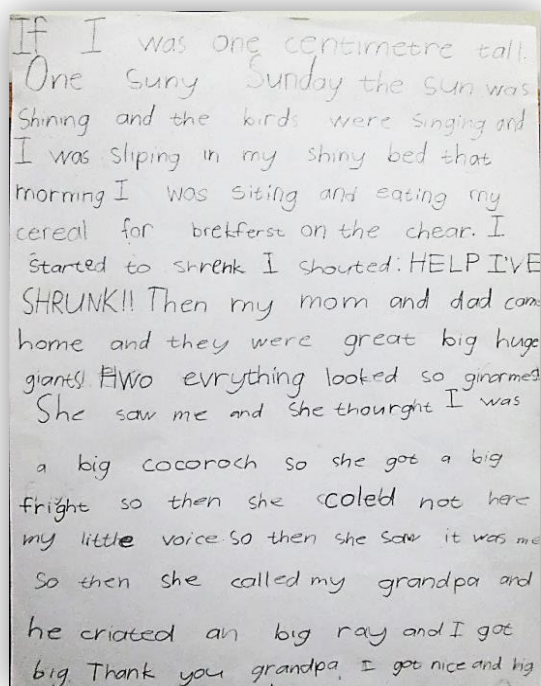 If I was one centimetre tall.
One suny Sunday the sun was
Shining and the birds were singing and
I was sliping in my shiny bed that
morning I was siting and eating my
cereal for brekferst on the chear. I
started to shrenk I shouted: HELP I'VE
SHRUNK!! Then my mom and dad came
home and they were great big huge
giants! evrything looked so ginormed
She saw me and she thourght I was
a big cocoroch so she got a big
fright so then she coled not here
my little voice so then she saw it was me
So then she called my grandpa and
he criated an big ray and I got
big. Thank you grandpa. I got nice and big